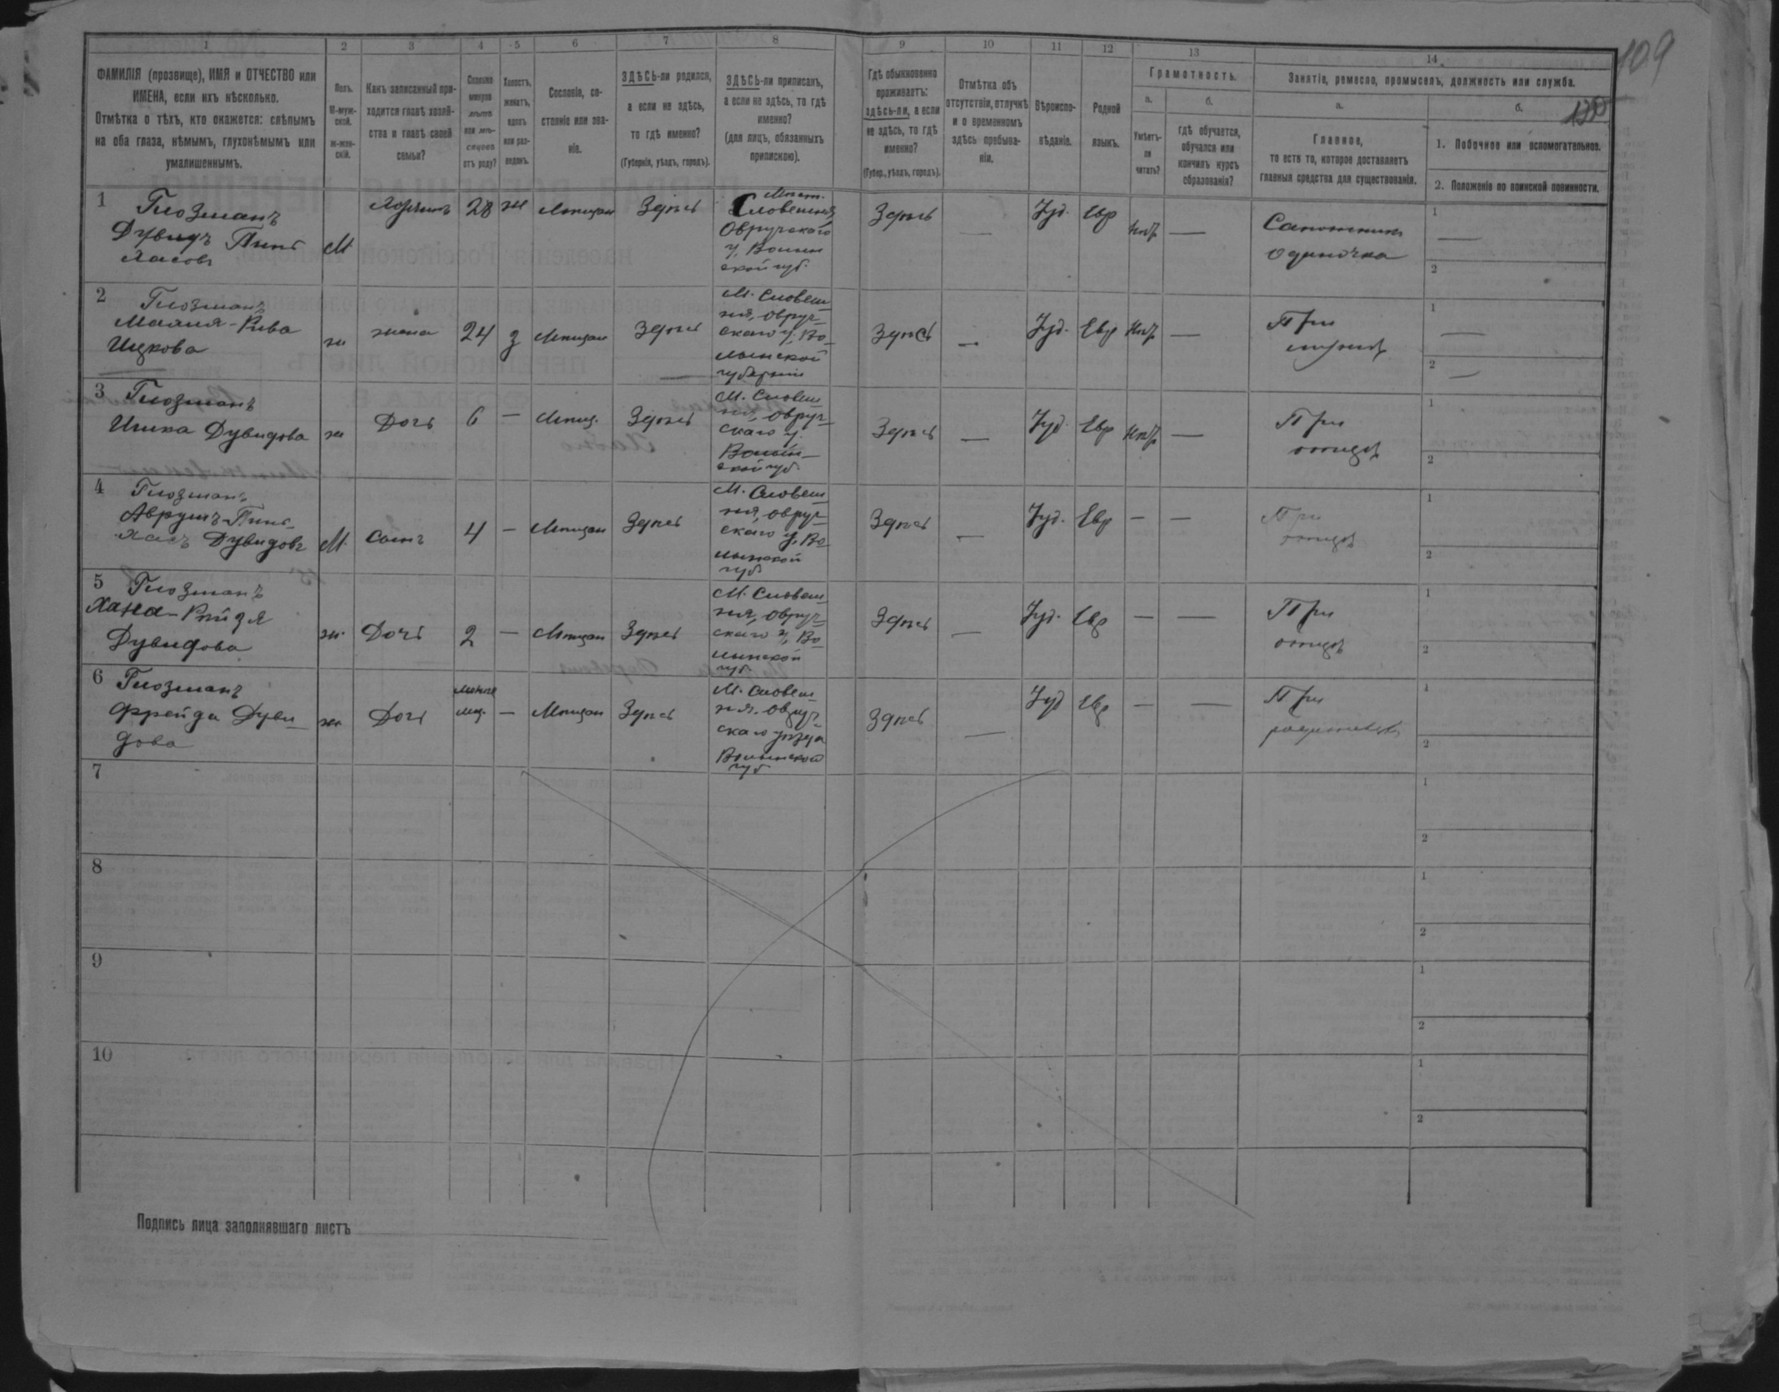 109
1 2 3 4 5 6 7 8 9 10 11 12 13 14
ФАМИЛІЯ (прозвище), ИМЯ и ОТЧЕСТВО или
ИМЕНА, если ихъ нѣсколько.
Отмѣтка о тѣхъ, кто окажется: слѣпымъ
на оба глаза, нѣмымъ, глухонѣмымъ или
умалишеннымъ.
Полъ.
М-муж-
ской.
Ж-жен-
скій.
Какъ записанный при-
ходится главѣ хозяй-
ства и главѣ своей
семьи?
Сколько
минуло
лѣтъ
или мѣ-
сяцевъ
отъ роду?
Холостъ,
женатъ,
вдовъ
или раз-
веденъ.
Сословіе, со-
стояніе или зва-
ніе.
ЗДѢСЬ-ли родился,
а если не здѣсь,
то гдѣ именно?
(Губернія, уѣздъ, городъ).
ЗДѢСЬ-ли приписанъ,
а если не здѣсь, то гдѣ
именно?
(для лицъ, обязанныхъ
припискою).
Гдѣ обыкновенно
проживаетъ:
здѣсь-ли, а если
не здѣсь, то гдѣ
именно?
(Губер., уѣздъ, городъ).
Отмѣтка объ
отсутствіи, отлучкѣ
и о временномъ
здѣсь пребыва-
ніи.
Вѣроиспо-
вѣданіе.
Родной
языкъ.
Грамотность.
а.
Умѣетъ-
ли
читать?
б.
гдѣ обучается,
обучался или
кончилъ курсъ
образованія?
Занятіе, ремесло, промыселъ, должность или служба.
а.
Главное,
то есть то, которое доставляетъ
главныя средства для существованія.
б.
1. Побочное или вспомогательное.
2. Положеніе по воинской повинности.
1 Глозманъ
Дувидъ Пинь
хасовъ
М
28 ж Мѣщан Здѣсь
Мѣст.
Словешня
Овручского
у, Волын
ской губ.
Здѣсь — Іуд. Евр нѣтъ —
Сапожникъ
одиночка
1 —
2
2 Глозманъ
Малия-Рива
Ицкова
ж жена 24 з Мѣщан Здѣсь
М. Словеш
ня, овруч-
скаго у, Во-
лынской
губерніи
Здѣсь — Іуд. Евр нѣтъ —
При
мужѣ
1 —
2 —
3 Глозманъ
Дувидова
ж Дочь 6 — Мѣщ. Здѣсь
М. Словеш
ня, овруч-
скаго у.
Волын-
ской губ.
Здѣсь — Іуд. Евр нѣтъ —
При
отцѣ
1
2
4 Глозманъ
Аврумъ-Пинь-
хасъ Дувидовъ
М. Сынъ 4 — Мѣщан Здѣсь
М. Словеш
ня, овруч-
скаго у, Во
лынской
губ
Здѣсь — Іуд. Евр — —
При
отцѣ
1
2
5 Глозманъ
Хана-Рейзя
Дувидова
ж. Дочь 2 — Мѣщан Здѣсь
М. Словеш
ня, овруч-
скаго у, Во
лынской
губ.
Здѣсь — Іуд. Евр — —
При
отцѣ
1
2
6 Глозманъ
Фрейда Дуви-
дова
ж Дочь — Мѣщан Здѣсь
М. Словеш
ня. овруч-
скаго уѣзда
Волынской
губ
Здѣсь — Іуд Евр — —
При
родителяхъ
1
2
7
1
2
8
1
2
9
1
2
10
1
2
Подпись лица заполнявшаго листъ